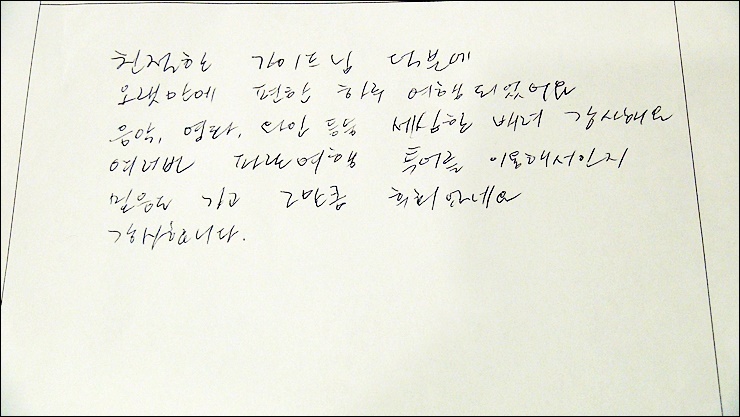 친절한 가이드님 덕분에
오랫만에 편한 하루 여행 되었어요
음악, 영화, 와인 등등 세심한 배려 감사해요
여러번 파란여행 투어를 이용해서인지
믿음도 가고 그만큼 후회 안하네요
감사합니다.